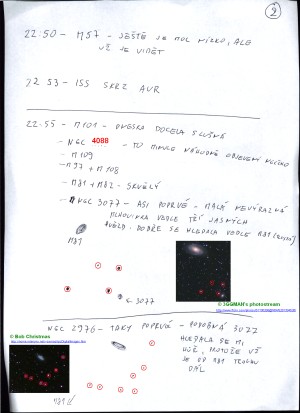 2
22:50 - M57 - JEŠTĚ JE MOC NÍZKO, ALE
UŽ JE VIDĚT
22 53 - ISS SKRZ AUR
22:55 - M101 - DNESKA DOCELA SLUŠNÁ
- NGC 4088 - TO MINULE NÁHODNĚ OBJEVENÝ
- M109
- M97 + M108
- M81 + M82 - SKVĚLÝ
- NGC 3077 - ASI POPRVÉ - MALÁ NEVÝRAZNÁ
MLHOVINKA VEDLE TŘÍ JASNÝCH
HVĚZD. DOBŘE SE HLEDALA VEDLE M81
M81
3077
© JGGMAN's photostream
NGC 2976 - TAKY POPRVÉ - PODOBNÁ 3077
© Bob Christmas
HLEDALA SE MI
HŮŘ, PROTOŽE UŽ
JE OD M81 TROCHU
DÁL
M81